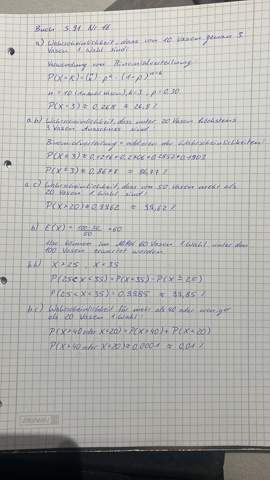 Buch S. 91 Nr. 16
a) Wahrscheinlichkeit, dass von 10 Vasen genau 3
Vasen 1. Wahl sind:
Verwendung von Binomialverteilung
P(X=k) = (n k) · p^k · (1-p)^n-k
n = 10 (Anzahl Vasen), k=3, p=0,30
P(X=3) ≈ 0,268 ≈ 26,8 %
a.b) Wahrscheinlichkeit, dass unter 20 Vasen höchstens
3 Vasen Ausschuss sind
Binomialverteilung = addieren der Wahrscheinlichkeiten:
P(X≤3) ≈ 0,1216+0,2706+0,2852+0,1903
P(X≤3) ≈ 0,8678 ≈ 86,77 %
a.c) Wahrscheinlichkeit, dass von 50 Vasen mehr als
20 Vasen 1. Wahl sind:
P(X>20) ≈ 0,3362 ≈ 33,62 %
b) E(X) = = 60
Also können im Mittel 60 Vasen 1. Wahl unter den
100 Vasen erwartet werden.
b.b) X=25, X=35
P(25≤X≤35) = P(X≤35) - P(X≤25)
P(25≤X≤35) ≈ 0,3385 ≈ 33,85 %
b.c) Wahrscheinlichkeit für mehr als 40 oder weniger
als 20 Vasen 1. Wahl:
P(X>40 oder X<20) = P(X>40) + P(X<20)
P(X>40 oder X<20) ≈ 0,0001 ≈ 0,01 %